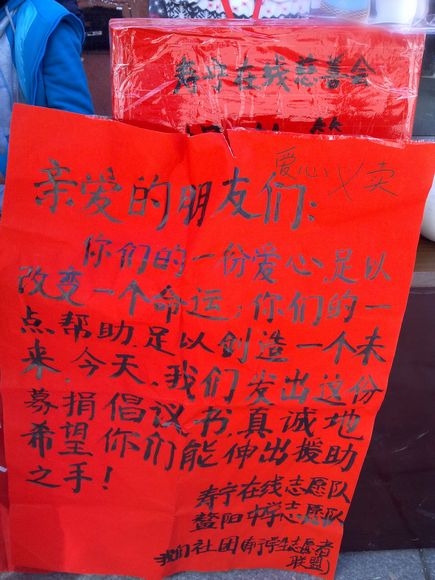 寿宁在线慈善会
爱心义卖
亲爱的朋友们:
你们的一份爱心,足以
改变一个命运;你们的一
点帮助,足以创造一个未
来,今天,我们发出这份
募捐倡议书,真诚地
希望你们能伸出援助
之手!
寿宁在线志愿队
鳌阳中学志愿队
我们社团
学生志愿者
联盟